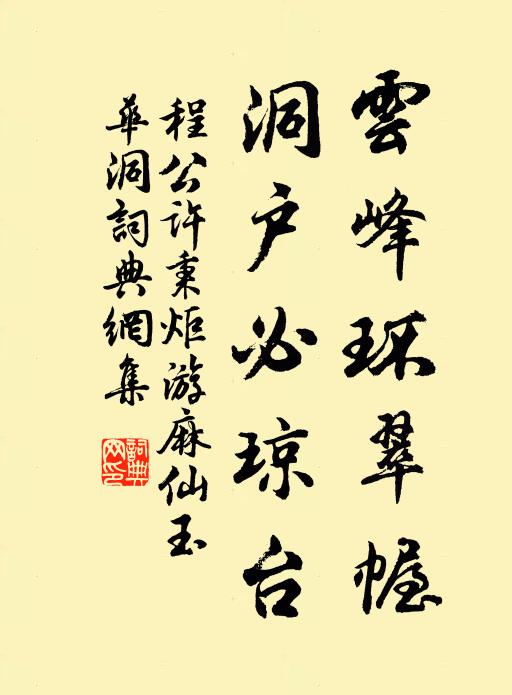 雲峰环翠幄
洞户必琼台
程公许秉炬游麻仙玉
華洞詞典網集
詞典网印